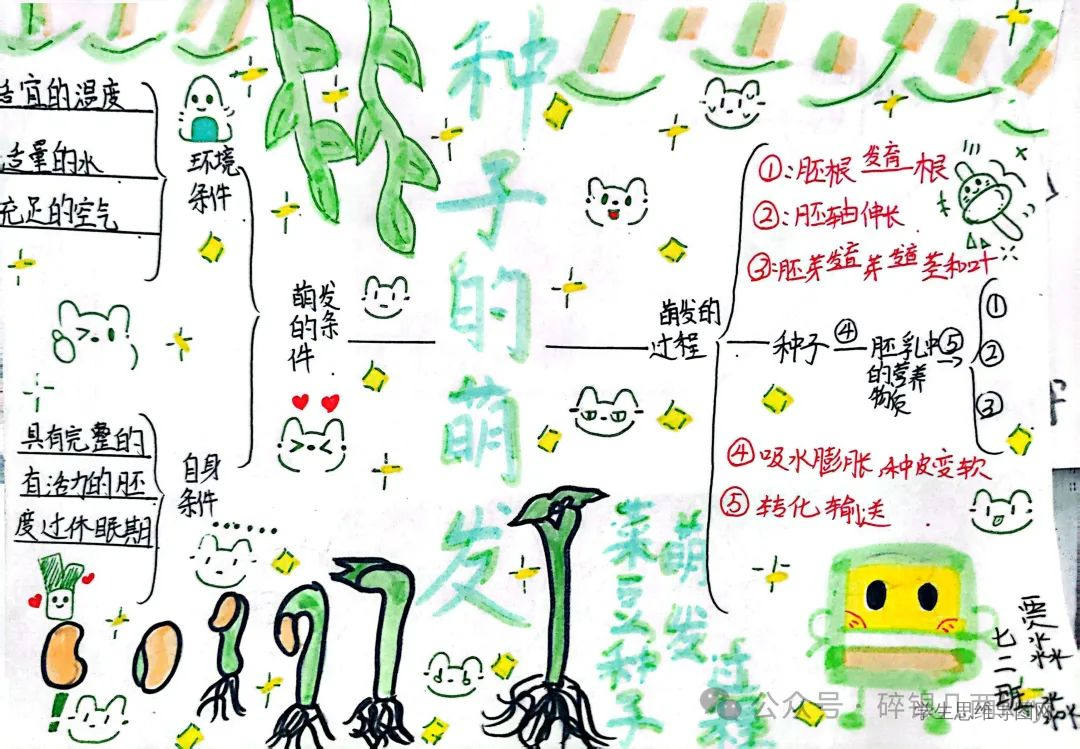 种子的萌发
适宜的温度
适量的水
充足的空气
环境
条件
具有完整的
有活力的胚
度过休眠期
自身
条件
萌发
的条
件
萌发的
过程
①:胚根 发育 根
②:胚轴伸长
③:胚芽 发育 芽 发育 茎和叶
种子 ④ 胚乳中 ⑤
的营养
物质
①
②
③
④吸水膨胀,种皮变软
⑤转化输送
菜豆种子
萌发
过程
七二班
公众号·碎银几两
学生思维导图网